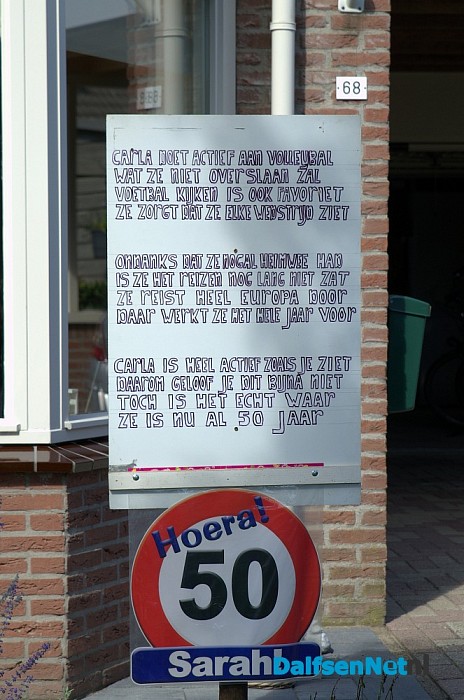 68
CARLA DOET ACTIEF AAN VOLLEYBAL
WAT ZE NIET OVERSLAAN ZAL
VOETBAL KIJKEN IS OOK FAVORIET
ZE ZORGT DAT ZE ELKE WEDSTRIJD ZIET
ONDANKS DAT ZE NOGAL HEIMWEE HAD
IS ZE HET REIZEN NOG LANG NIET ZAT
ZE REIST HEEL EUROPA DOOR
DAAR WERKT ZE HET HELE JAAR VOOR
CARLA IS HEEL ACTIEF ZOALS JE ZIET
DAAROM GELOOF JE DIT BIJNA NIET
TOCH IS HET ECHT WAAR
ZE IS NU AL 50 JAAR
Hoera!
50
Sarah
balfsenNet.Nl